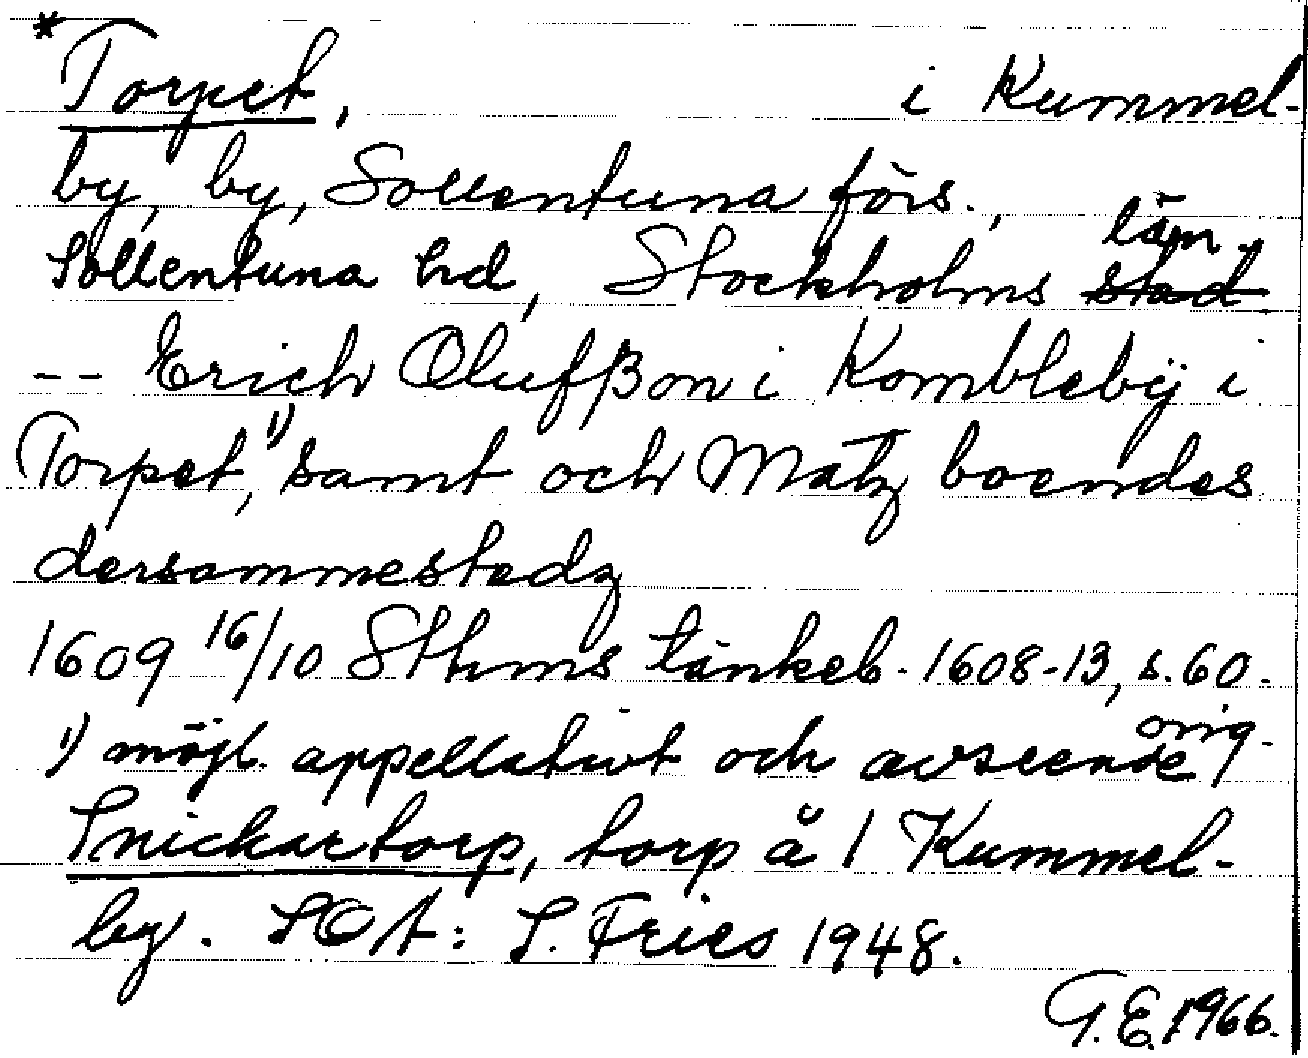 *Torpet, i Kummel-
by, by, Sollentuna förs.,
Sollentuna hd, Stockholms stad län.
-- Erich Olufßon i Kombleby̋ i
Torpet,¹⁾ samt och Matz boendes
dersammestedz
1609 16/10 Sthms tänkeb. 1608-13, s. 60.
1) möjl. appellativt och avseende orig.
Snickartorp, torp å 1 Kummel-
by. SOA: S. Fries 1948.
G.E. 1966.